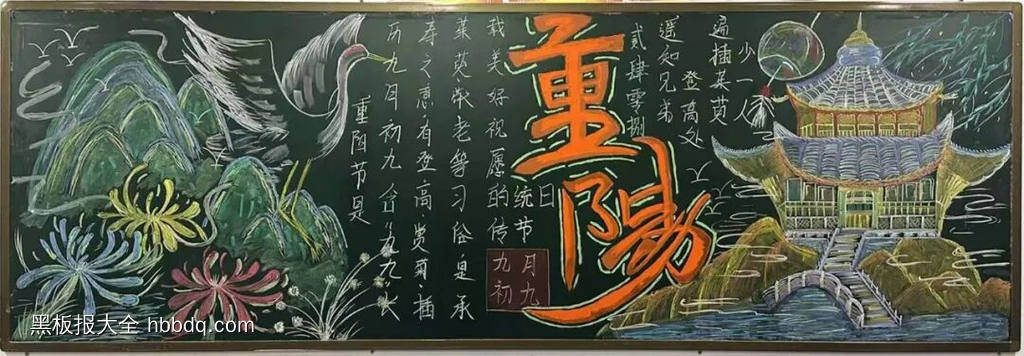 重阳节是
历九月初九合“九九”长
寿之意·有登高·赏菊·插
茱萸敬老等习俗是承
载美好祝愿的传
统节
日
九月
初九
重陽
贰肆零捌
遥知兄弟
登高处
遍插茱萸
少一人
黑板报大全 hbbdq.com